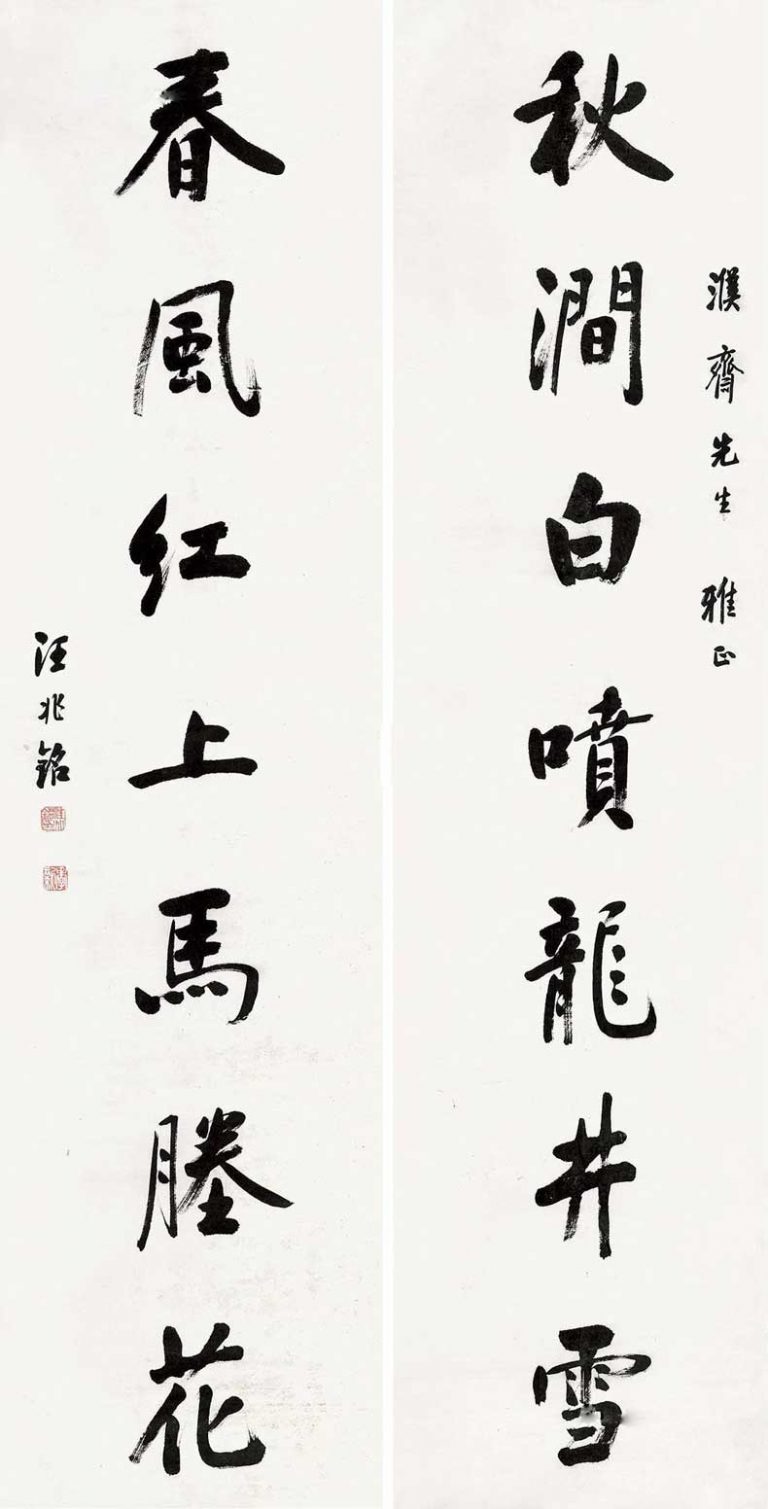 齊先生 雅正
秋澗白噴龍井雪
春風紅上馬塍花
汪兆銘